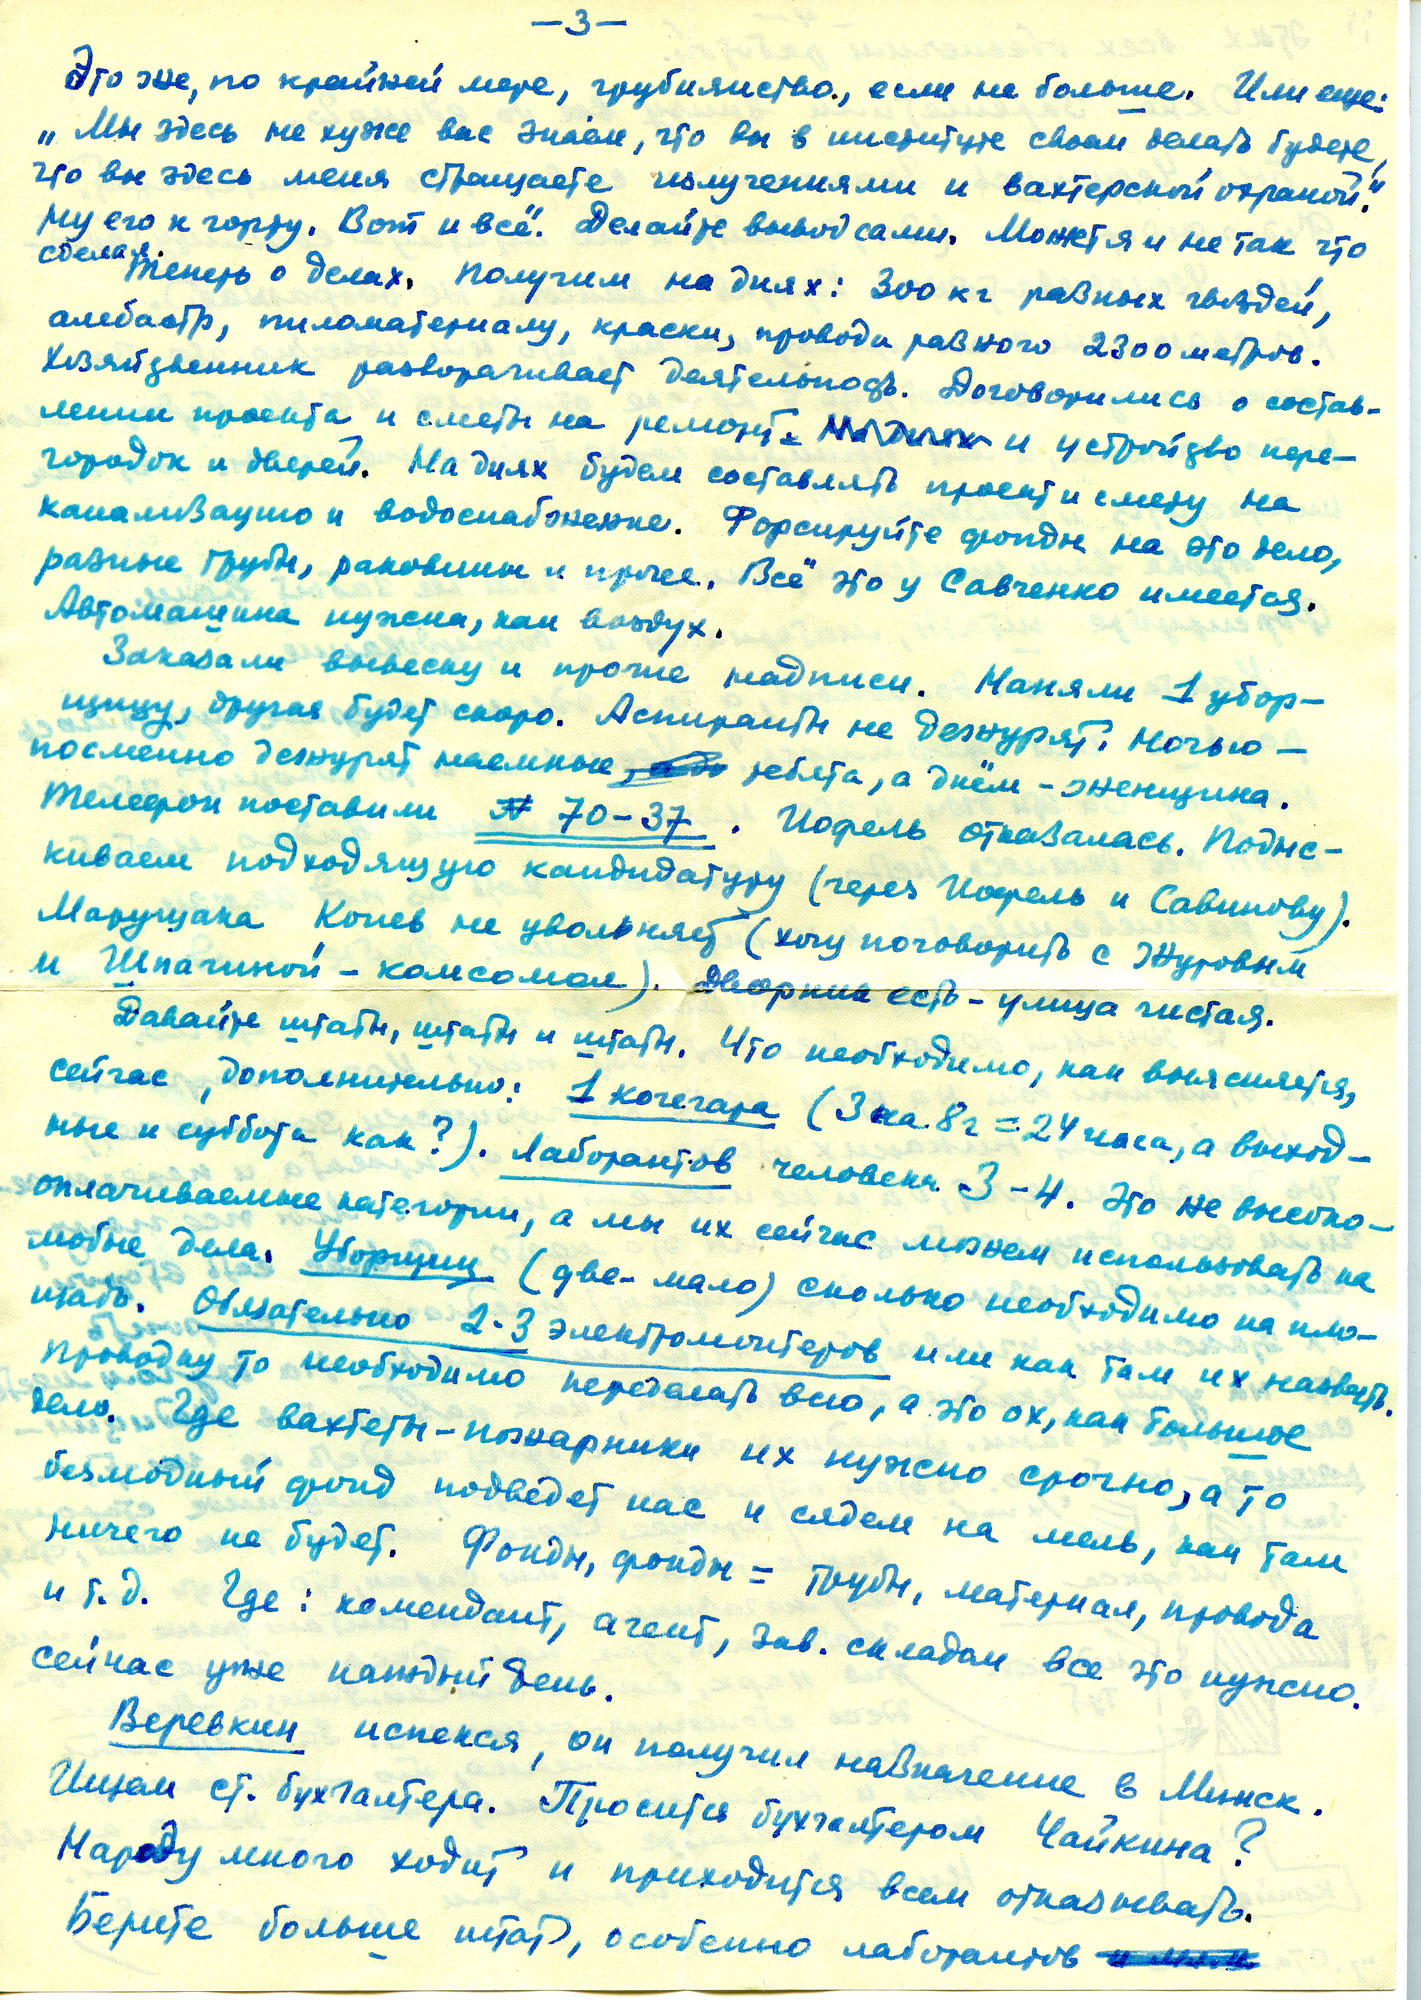 —3—
Это же, по крайней мере, грубиянство, если не больше. Или еще:
„Мы здесь не хуже вас знаем, что вы в институте своем делать будете,
что вы здесь меня стращаете излучениями и вахтерской охраной."
Ну его к чорту. Вот и всё. Делайте вывод сами. Может я и не так что
сделал.
Теперь о делах. Получим на днях: 300 кг разных гвоздей,
алебастр, пиломатериалу, краски, провода разного 2300 метров.
Хозяйственник разворачивает деятельность. Договорились о состав-
лении проекта и сметы на ремонт и устройство пере-
городок и дверей. На днях будем составлять проект и смету на
канализацию и водоснабжение. Форсируйте фонды на это дело,
разные трубы, раковины и прочее. Всё это у Савченко имеется.
Автомашина нужна, как воздух.
Заказали вывеску и прочие надписи. Наняли 1 убор-
щицу, другая будет скоро. Аспиранты не дежурят. Ночью —
посменно дежурят наемные ребята, а днём – женщина.
Телефон поставили № 70-37. Иофель отказалась. Подыс-
киваем подходящую кандидатуру (через Иофель и Савинову).
Марущака Конев не увольняет (хочу поговорить с Журовым
и Шпагиной – комсомол). Дворник есть – улица чистая.
Давайте штаты, штаты и штаты. Что необходимо, как выясняется,
сейчас, дополнительно: 1 кочегара (3 на 8 ч = 24 часа, а выход-
ные и суббота как?). Лаборантов человека 3-4. Это не высоко-
оплачиваемые категории, а мы их сейчас можем использовать на
любые дела. Уборщиц (две – мало) сколько необходимо на пло-
щадь. Обязательно 2-3 электромонтеров или как там их назвать.
Проводку то необходимо переделать всю, а это ох, как большое
дело. Где вахтеры-пожарники их нужно срочно, а то
безлюдный фонд подведет нас и сядем на мель, как там
ничего не будет. Фонды, фонды = трубы, материал, провода
и т.д. Где: комендант, агент, зав. складом все это нужно
сейчас уже каждый день.
Веревкин испекся, он получил назначение в Минск.
Ищем ст. бухгалтера. Просится бухгалтером Чайкина?
Народу много ходит и приходится всем отказывать.
Берите больше штат, особенно лаборантов